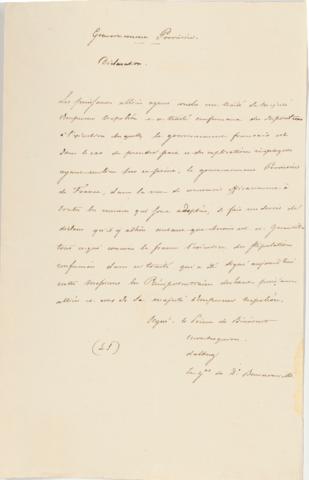 Gouvernement Provisoire.
Déclaration.
Les puissances alliées ayant conclu un traité de sa majesté
l'Empereur Napoléon et ce traité renfermant des dispositions
à l'exécution desquelles le gouvernement français est
dans le cas de prendre part et des explications réciproques
ayant eu lieu sur ce point, le gouvernement Provisoire
de France, dans la vue de concourir efficacement à
toutes les mesures qui sont adoptées, se fait un devoir de
déclarer qu'il y adhère autant que besoin est et garantit
tout ce qui concerne la France l'exécution des stipulations
renfermées dans ce traité qui a été signé aujourd'hui
entre messieurs les Plénipotentiaires des hautes puissances
alliées et ceux de sa majesté l'Empereur Napoléon.
Signé. le Prince de Bénévent
Montesquiou
dalberg
le Gal. de Beurnonville
(LS)